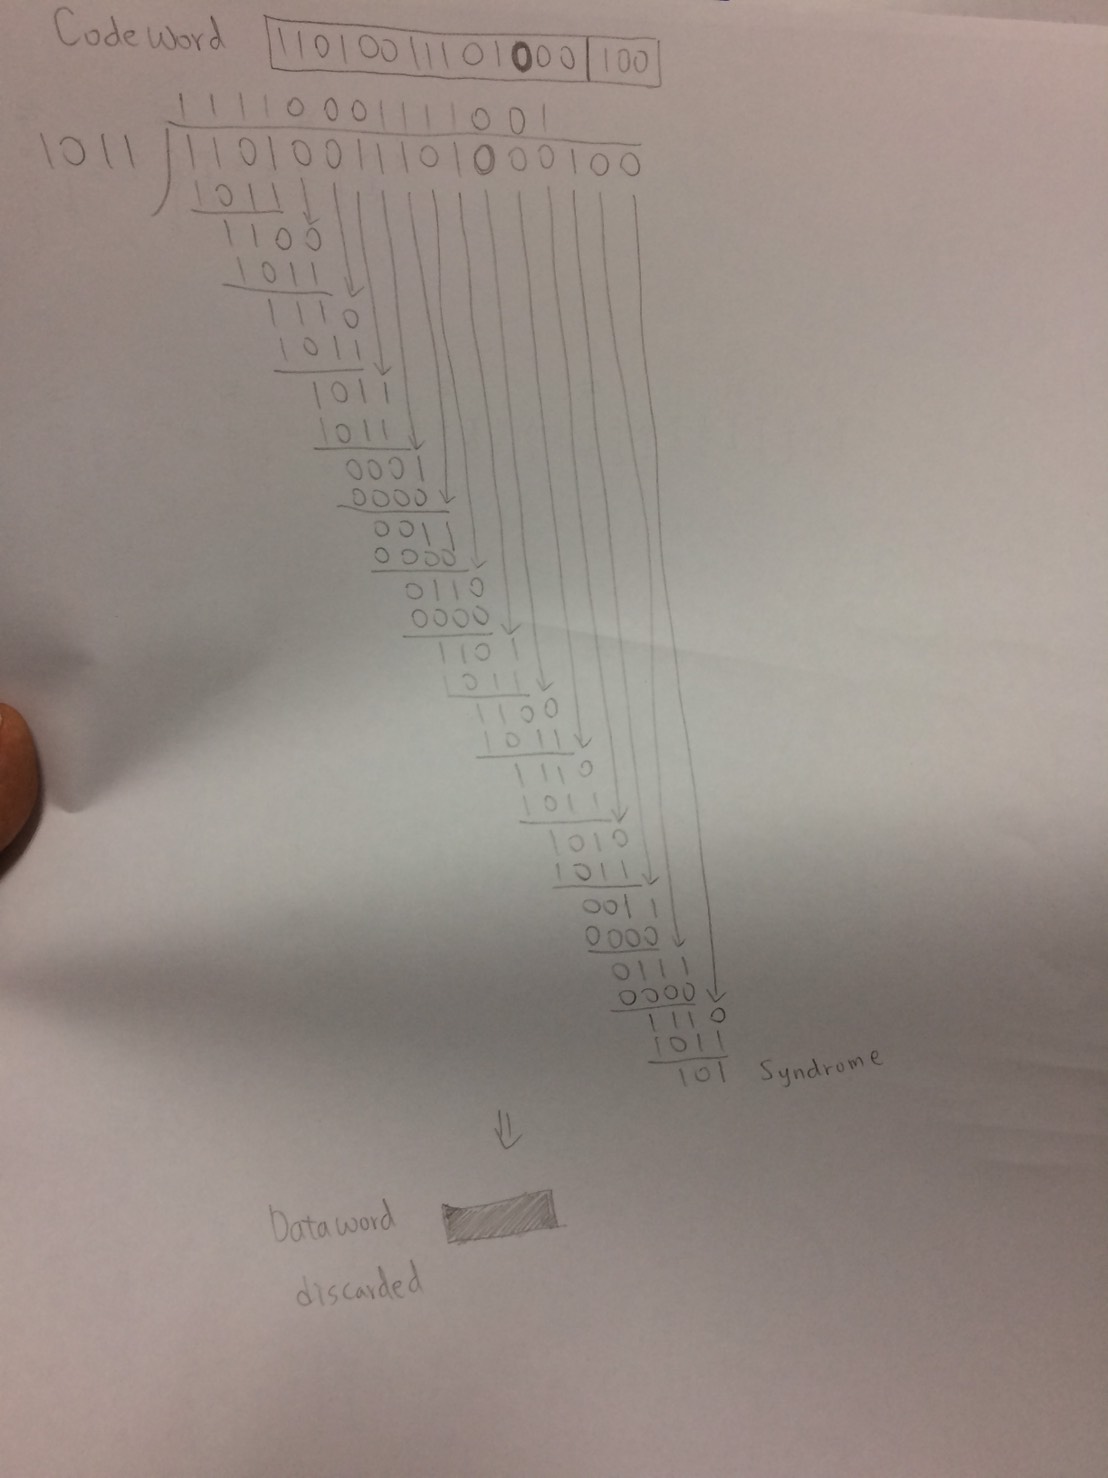 Codeword 11010011101000 100
11110001111001
1011 11010011101000100
1011
1100
1011
1110
1011
1011
1011
0001
0000
0011
0000
0110
0000
1101
1011
1100
1011
1110
1011
1010
1011
0011
0000
0111
0000
1110
1011
101 Syndrome
Dataword
discarded